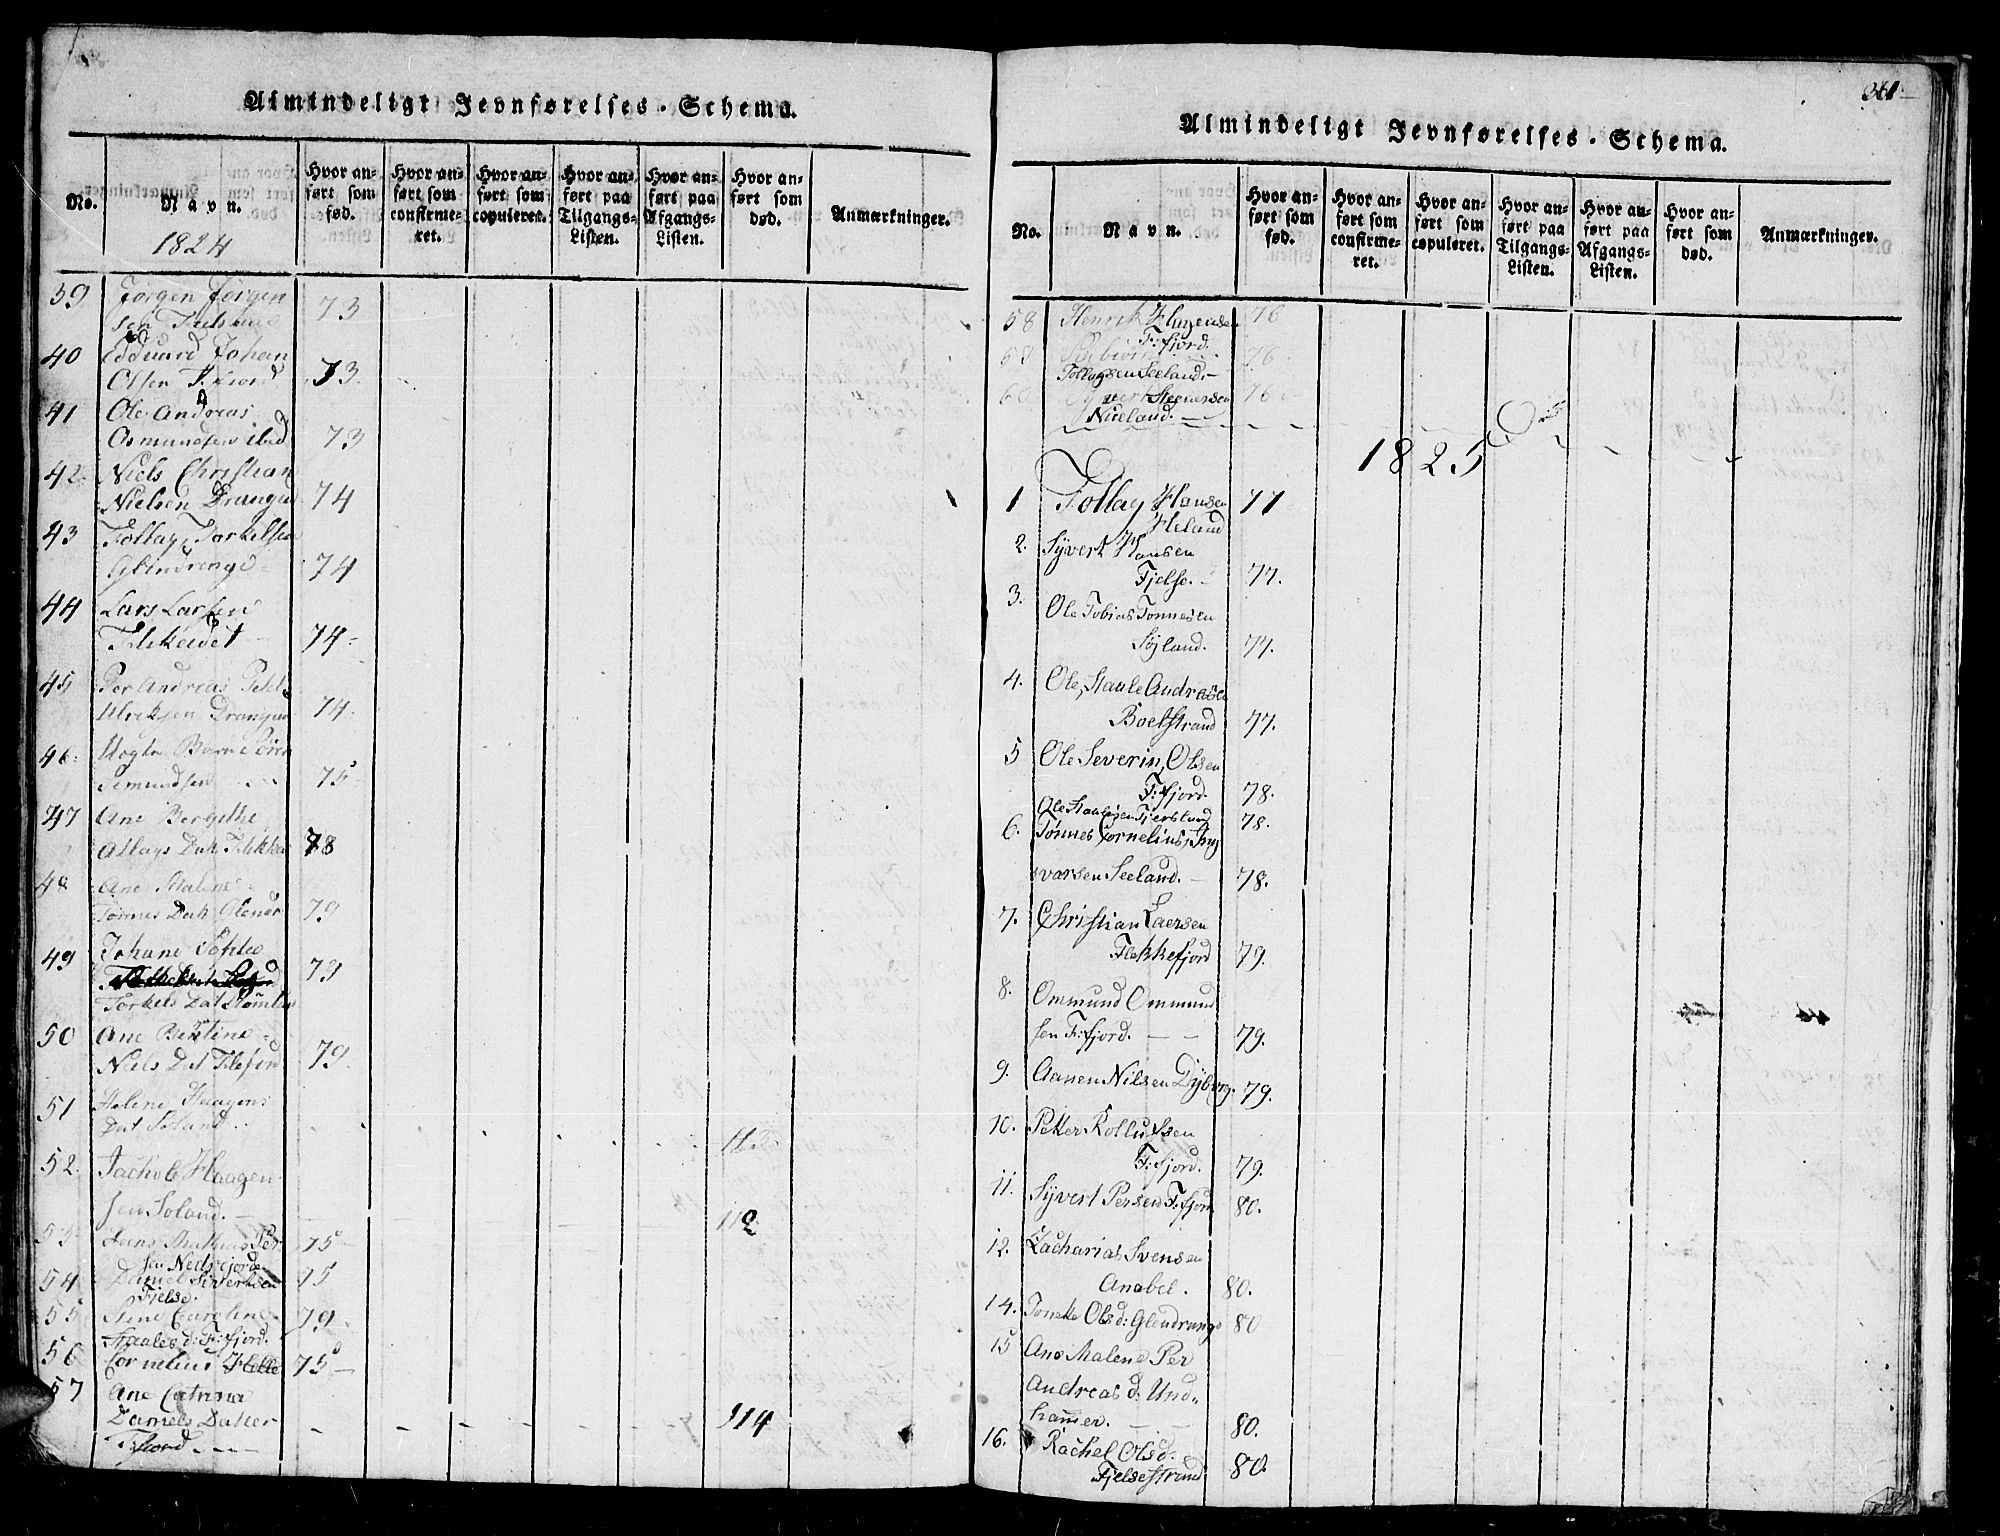 Almindeligt Jevnførelses-Schema.
No.
Navn.
Hvor anført som fød.
Hvor anført som confirmeret.
Hvor anført som copuleret.
Hvor anført paa Tilgangs-Listen.
Hvor anført paa Afgangs-Listen.
Hvor anført som død.
Anmærkninger.
1824
39 Jørgen Jørgen
sen 73
40 Edduard Johan
Olsen F:fiord 73.
41 Ole Andreas
Osmundsen ibid 73
42. Niels Christian
Nielsen Drangeid 74
43 Tollag Torkelsen
Glendrenge 74
44 Lars Larsen
74-
45 Per Andreas
Ulriksen Drangeid 74.
46. Barn Søren
Semundsen 75
47 Ane Bergithe
Atlags Dat 78
48 Ane Malene
Tønnes Dat 79
49 Johane Sophie
79
Torkels Dat
50 Ane Bertine
Niels Dat 79.
51 Helene Haagens
Dat Soland 112
52. Jachob Haagen
sen Soland. 112
53 Hans Mathias Per-
sen 75-
54 Daniel Siverhsen
Fjelse 75
55 Stine Caroline
Staales d: F:fjord. 79.
56 Cornelius 75-
57 Ane Catrina
Daniels Datter
F:fjord 114
361
Almindeligt Jevnførelses-Schema.
No.
Navn.
Hvor anført som fød.
Hvor anført som confirmeret.
Hvor anført som copuleret.
Hvor anført paa Tilgangs-Listen.
Hvor anført paa Afgangs-Listen.
Hvor anført som død.
Anmærkninger.
58 Henrik 76
F:fjord.
59 76
Tollagsen Seeland.-
60 Syvert Steenersen 76
Nieland.
1825
1 Tollag Hansen 77
Heland
2. Syvert Hansen
Fjelse. 77.
3. Ole Tobias Tønnesen
Søyland. 77.
4. Ole Staale Andreasen
Boelstrand 77.
5 Ole Severin Olsen
F:fjord. 78.
Ole Staalesen 78.
6. Tønnes Cornelius Ing
varsen Seeland. 78.
7. Christian Laersen
Flekkefjord 79.
8. Ommund Ommund
sen F:fjord. 79.
9. Aanen Nilsen Dyborg. 79.
10. Petter Rollufsen
F:fjord. 79.
11. Syvert Persen F:fjord 80.
12. Zacharias Svensen
Anabel. 80.
14. Joneke Olsd: Glendrange 80
15 Ane Malene Per
Andreas d: Und-
hammer. 80.
16. Rachel Olsd:
Fjelsestrand 80.